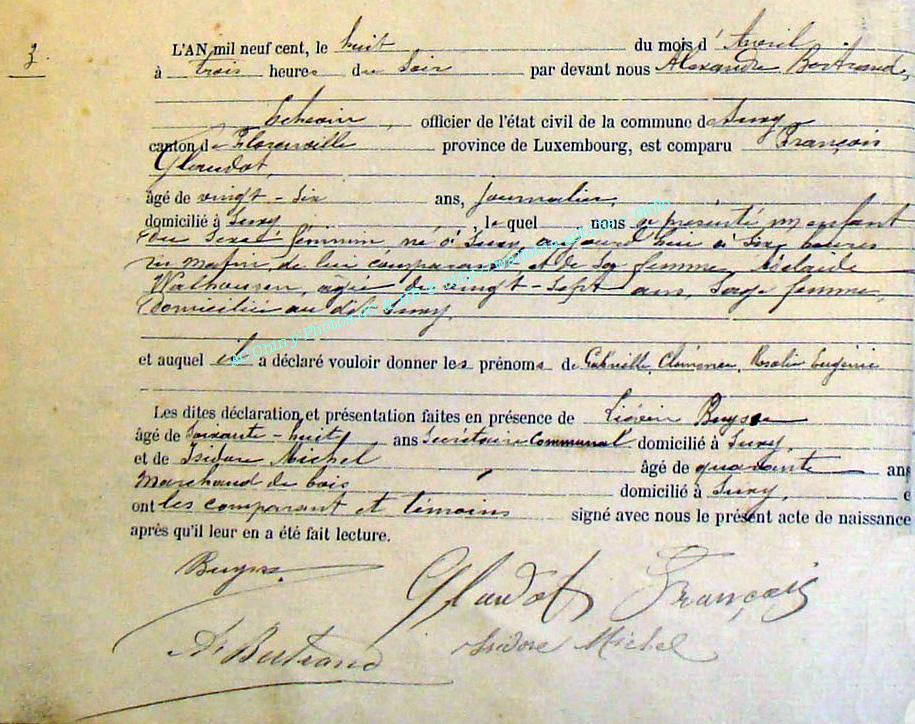 3.
L'AN mil neuf cent, le huit du mois d'Avril
à trois heures du soir par devant nous Alexandre Bertrand,
Echevin, officier de l'état civil de la commune de Suxy
canton de Florenville province de Luxembourg, est comparu François
Glaudot,
âgé de vingt-six ans, journalier,
domicilié à Suxy, lequel nous a présenté un enfant
du sexe féminin né à Suxy, aujourd'hui à six heures
du matin, de lui comparant et de sa femme, Adelaïde
agée de vingt-sept ans, sage femme,
Domiciliée au dit Suxy.
et auquel il a déclaré vouloir donner les prénoms de Gabrielle, Rosalie Eugénie
Les dites déclaration et présentation faites en présence de
âgé de soixante-huit ans Secrétaire communal domicilié à Suxy,
et de Isidore Michel âgé de quarante ans
Marchand de bois domicilié à Suxy,
ont les comparant et témoins signé avec nous le présent acte de naissance
après qu'il leur en a été fait lecture.
Glaudot François
A. Bertrand Isidore Michel